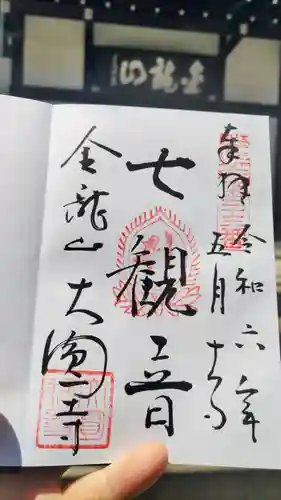 山龍金
奉拝
令和六年
五月十五日
七観音
金龍山
大圓寺